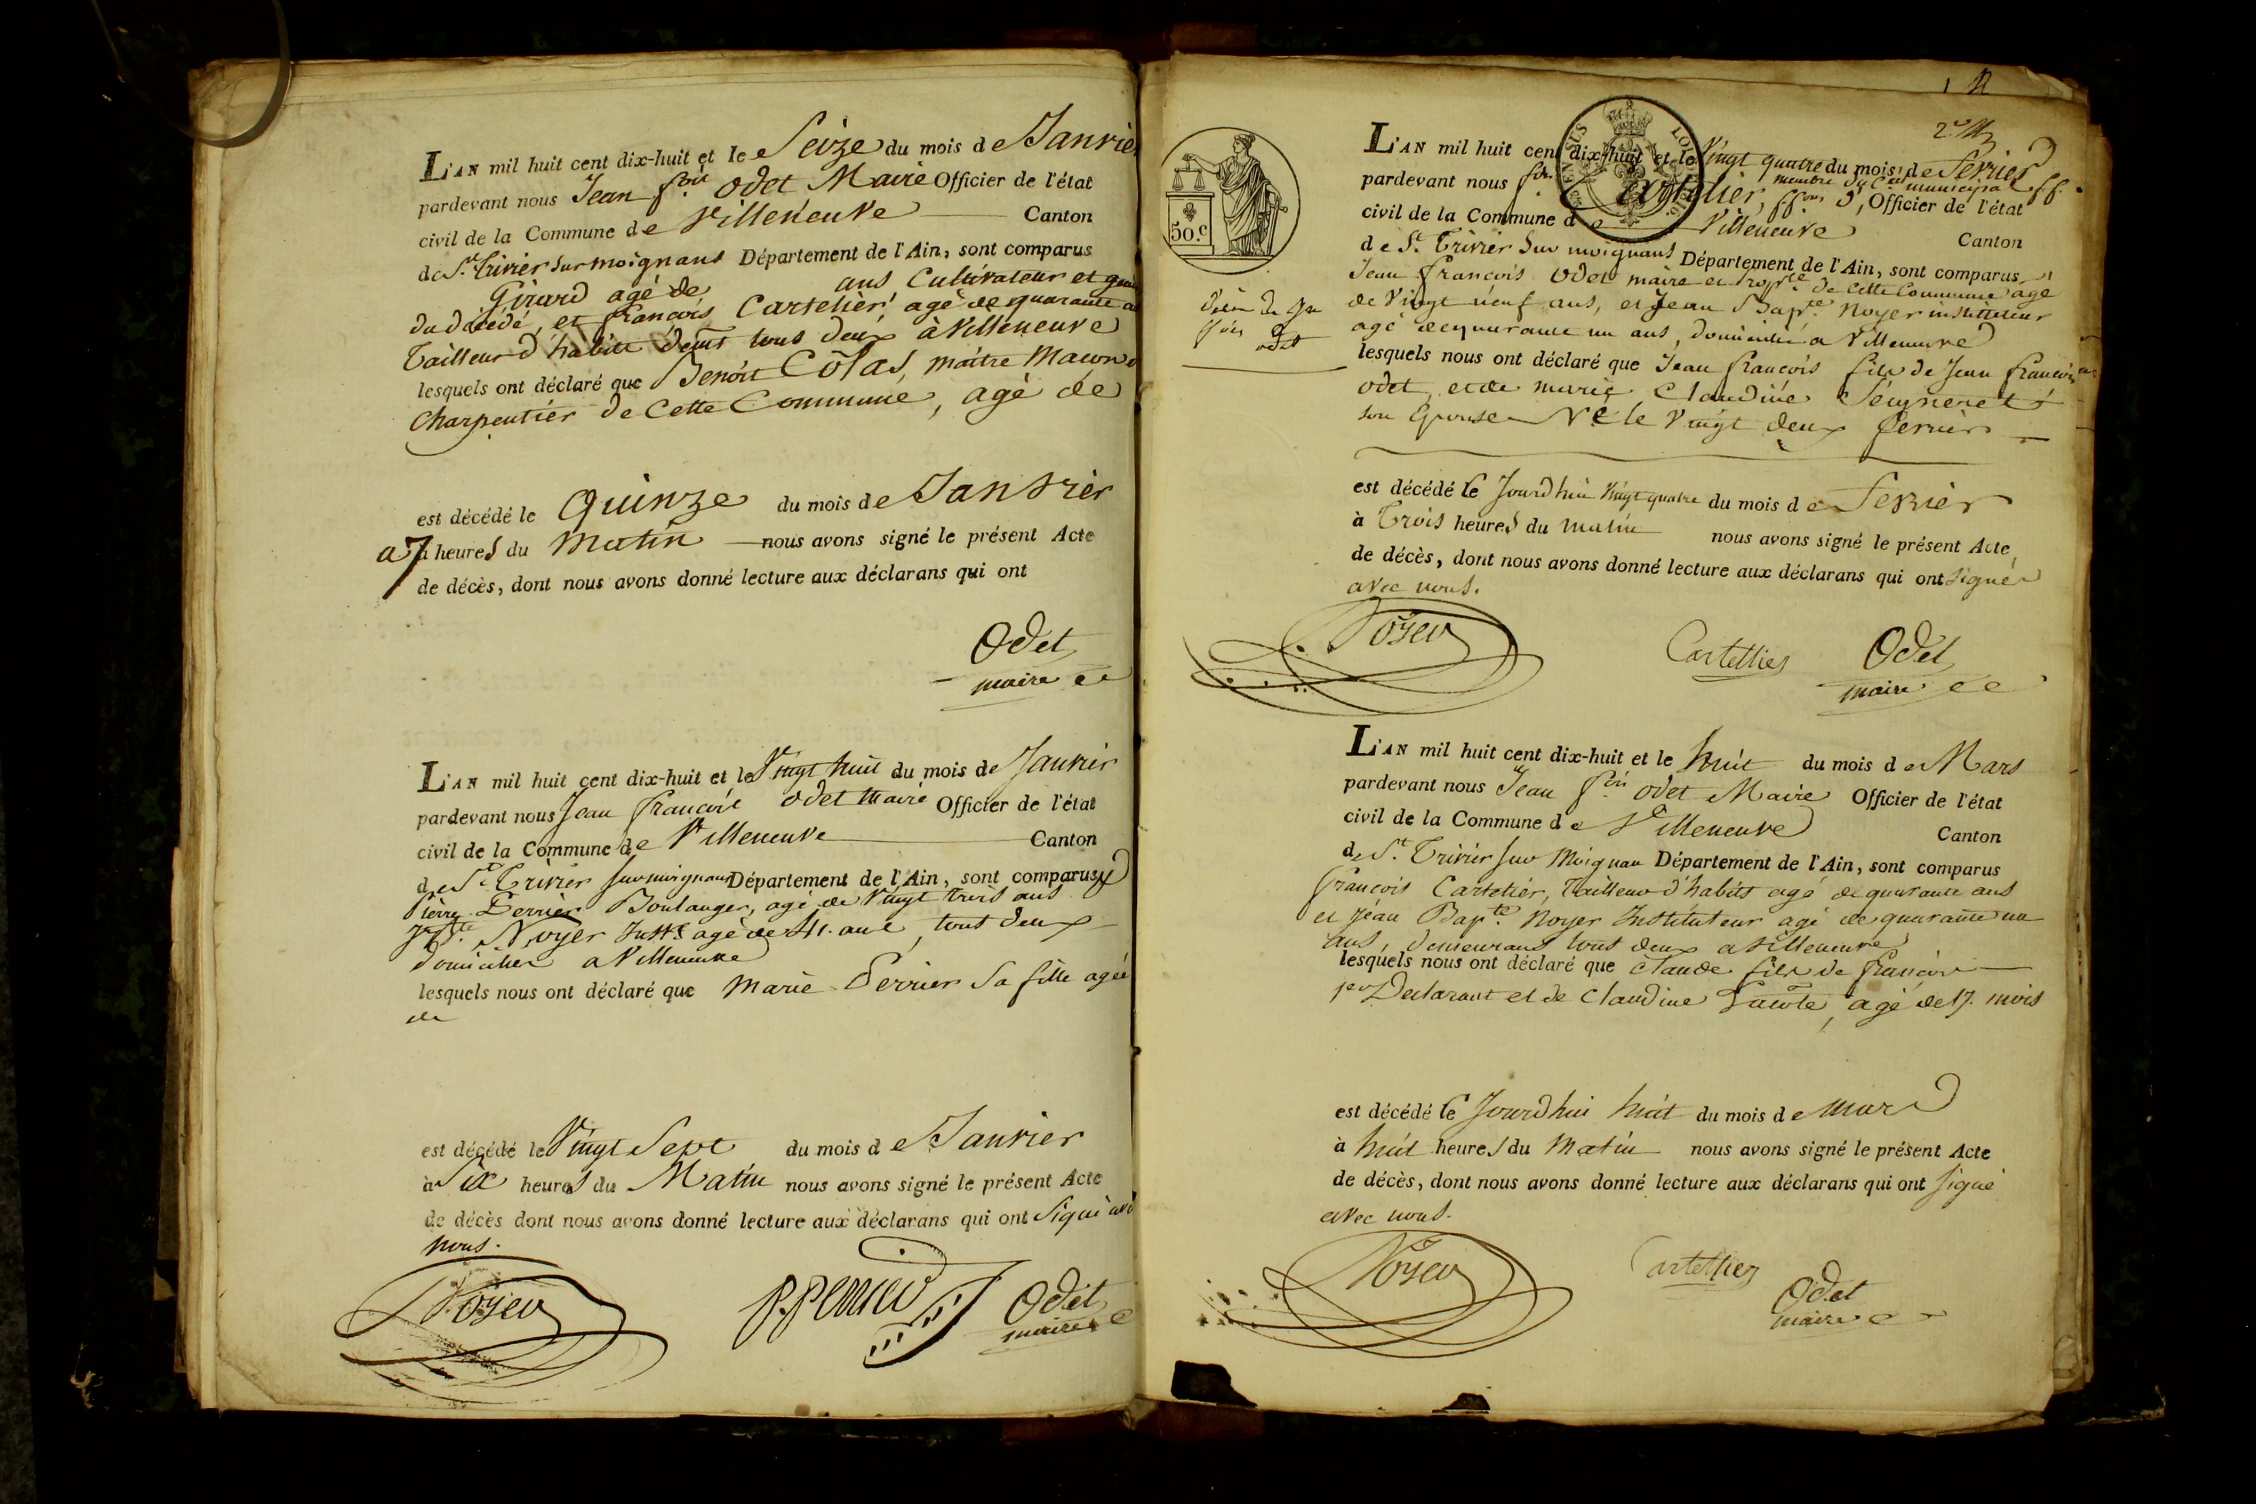 L'AN mil huit cent dix-huit et le Seize du mois de Janvier
pardevant nous Jean fois Odet Maire Officier de l'état
civil de la Commune de Villeneuve Canton
de St. Trivier sur moignans Département de l'Ain, sont comparus
Girard agé de ans Cultivateur et
du décédé, et françois Cartelier agé de quarante
Tailleur d'habits demt tous deux à Villeneuve
lesquels ont déclaré que Benoit Colas, maitre Macon
Charpentier de Cette Commune, agé de
est décédé le Quinze du mois de Janvier
a 7 à heures du Matin nous avons signé le présent Acte
de décès, dont nous avons donné lecture aux déclarans qui ont
Odet
maire
L'AN mil huit cent dix-huit et le Vingt huit du mois de Janvier
pardevant nous Jean françois Odet Maire Officier de l'état
civil de la Commune de Villeneuve Canton
de St. Trivier sur moignans Département de l'Ain, sont comparus
Pierre Perrier Boulanger, agé de Vingt trois ans
Noyer Instr agé de 41. ans, tous deux
domiciliés a Villeneuve
lesquels nous ont déclaré que Marie Perrier sa fille agée
de
est décédé le Vingt Sept du mois de Janvier
à Six heures du Matin nous avons signé le présent Acte
de décès dont nous avons donné lecture aux déclarans qui ont Signé
nous.
Noyer
P. Perrier
Odet
maire
50.c
Odet
2e
L'AN mil huit cent dix-huit et le Vingt quatre du mois de Fevrier
pardevant nous fois Cartelier, membre du Cil municipal ff.
ffons d', Officier de l'état
civil de la Commune de Villeneuve Canton
de St. Trivier sur moignans Département de l'Ain, sont comparus
Jean françois Odet maire et propre de cette Commune agé
de Vingt neuf ans, et Jean Bapte Noyer instituteur
agé de quarante un ans, domiciliés a Villeneuve
lesquels nous ont déclaré que Jean françois fils de Jean françois
Odet, et de marie Claudine
son Epouse Né le Vingt deux fevrier
est décédé le Jourdhui Vingt quatre du mois de Fevrier
à Trois heures du matin nous avons signé le présent Acte,
de décès, dont nous avons donné lecture aux déclarans qui ont signés
avec nous.
Noyer
Cartellier
Odet
maire
L'AN mil huit cent dix-huit et le huit du mois de Mars
pardevant nous Jean fois Odet Maire Officier de l'état
civil de la Commune de Villeneuve Canton
de St. Trivier sur Moignan Département de l'Ain, sont comparus
françois Cartelier, Tailleur d'habits agé de quarante ans
et Jean Bapte Noyer Instituteur agé de quarante un
ans, demeurans tous deux a Villeneuve
lesquels nous ont déclaré que Claude fils de françois
1er Déclarant et de Claudine Lacote, agé de 17. mois
est décédé le Jourdhui huit du mois de mars
à huit heures du Matin nous avons signé le présent Acte
de décès, dont nous avons donné lecture aux déclarans qui ont signé
avec nous.
Noyer
Cartellier
Odet
maire